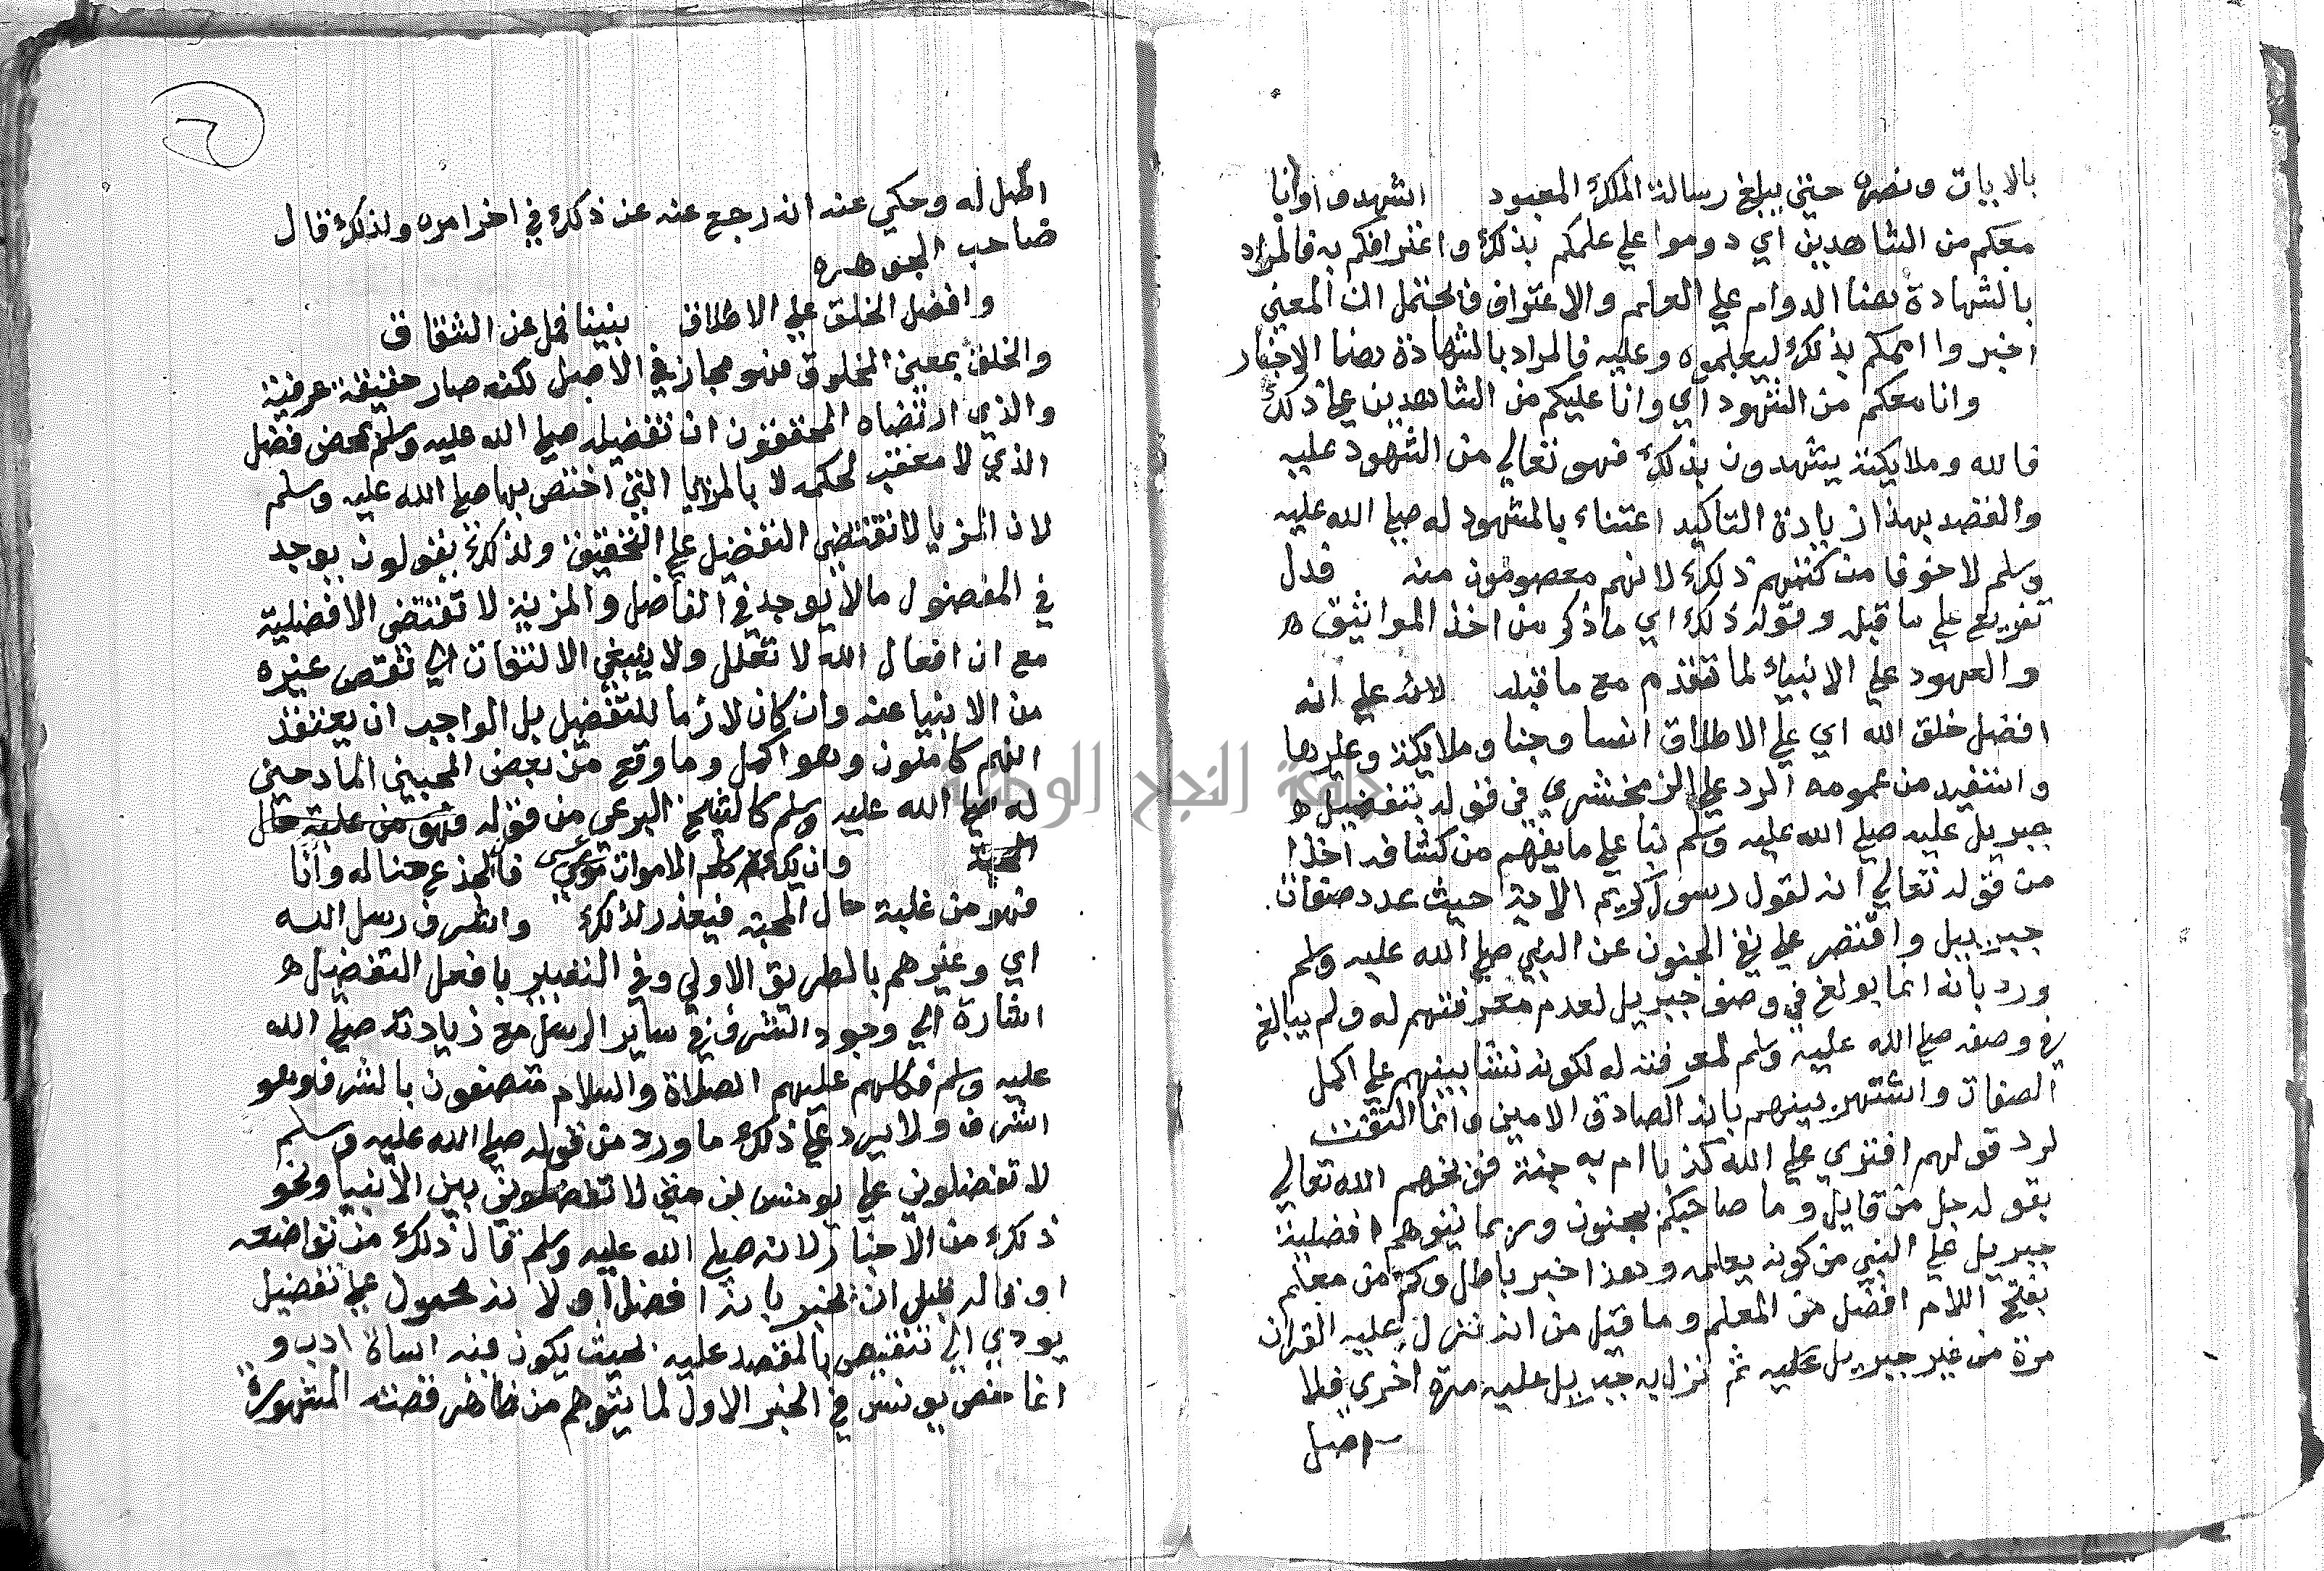 بالايات ونصره حتي يبلغ رسالة الملك المعبود اشهدو او انا
معكم من الشاهدين اي دوموا علي علمكم بذلك واعترافكم به فالمراد
بالشهادة هنا الدوام علي العلم والاعتراف فالحتمل ان المعني
اخبروا اممكم بذلك ليعلموه وعليه فالمراد بالشهادة هنا الاخبار
وانا معكم من الشهود اي وانا عليكم من الشاهدين علي ذلك
فالله وملايكته يشهدون بذلك فهو تعالي من الشهود عليه
والقصد بهذا زيادة التاكيد اعتناء بالمشهود له صلي الله عليه
وسلم لا خوفا من كتمهم ذلك لانهم معصومون منه فدل
تفريع علي ما قبله وقوله ذلك اي ما ذكر من اخذ المواثيق ه
والعهود علي الانبياء لما تقدم مع ما قبله لانه علي انه
افضل خلق الله اي علي الاطلاق انسا وجنا وملايكة وغيرها
واستفيد من عمومه الرد علي الزمخشري في قوله بتفضيل ه
جبريل عليه صلي الله عليه وسلم بنا علي ما يفهم من كشافه اخذا
من قوله تعالي انه لقول رسول كريم الاية حيث عدد صفات
جبريل واقتصر علي نفي الجنون عن النبي صلي الله عليه وسلم
ورد بانه انما بولغ في وصف جبريل لعدم معرفتهم له ولم يبالغ
في وصفه صلي الله عليه وسلم لمعرفته له لكونه نشا بينهم علي اكمل
الصفات واشتهر بينهم بانه الصادق الامين وانما التفت
لرد قولهم افتري علي الله كذبا ام به جنة فوبخهم الله تعالي
بقوله جل من قايل وما صاحبكم بمجنون وربما يتوهم افضلية
جبريل علي النبي من كونه يعلمه وهذا خبر باطل وكم من معلم
بفتح اللام افضل من المعلم وما قيل من انه نزل عليه القران
مرة من غير جبريل عليه ثم نزل به جبريل عليه مرة اخري فلا
اصل
اصل له وحكي عنه انه رجع عنه عن ذلك في اخر امره ولذلك قال
صاحب الجوهرة
وافضل الخلق علي الاطلاق نبينا فمل عن الشقاق
والخلق بمعني المخلوق فهو مجاز في الاصل لكنه صار حقيقة عرفية
والذي ارتضاه المحققون ان تفضيله صلي الله عليه وسلم بمحض فضل
الذي لا معقب لحكمه لا بالمزايا التي اختص بها صلي الله عليه وسلم
لان المزيا لا تقتضي التفضيل علي التحقيق ولذلك يقولون يوجد
في المفضول ما لا يوجد في الفاضل والمزية لا تقتضي الافضلية
مع ان افعال الله لا تعلل ولا ينبغي الالتفات الي نقص غيره
من الانبيا عنه وان كان لازما للتفضيل بل الواجب ان يعتقد
انهم كاملون وهو اكمل وما وقع من بعض المحبين المادحين
له صلي الله عليه وسلم كالشيخ البرعي من قوله فهو من غلبة حال
المحبة وان يك كلم الاموات عيسي فالجذع حنا له وانا
فهو من غلبة حال المحبة فيعذر لذلك واشرف رسل الله
اي وغيرهم بالطريق الاولي وفي التعبير بافعل التفضيل ه
اشارة الي وجود الشرف في ساير الرسل مع زيادته صلي الله
عليه وسلم فكلهم عليهم الصلاة والسلام متصفون بالشرف وهو
اشرف ولا يرد علي ذلك ما ورد من قوله صلي الله عليه وسلم
لا تفضلوني علي يونس بن متي لا تفضلوني بين الانبيا ونحو
ذلك من الاخبار لانه صلي الله عليه وسلم قال ذلك من تواضعه
او قاله قبل ان يخبر بانه افضل او لانه محمول علي تفضيل
يودي الي تنقيص بالمقصد عليه بحيث يكون فيه اساة ادب و
انما خص يونس في الخبر الاول لما يتوهم من ظاهر قصته المشهورة
جامعة النجاح الوطنية